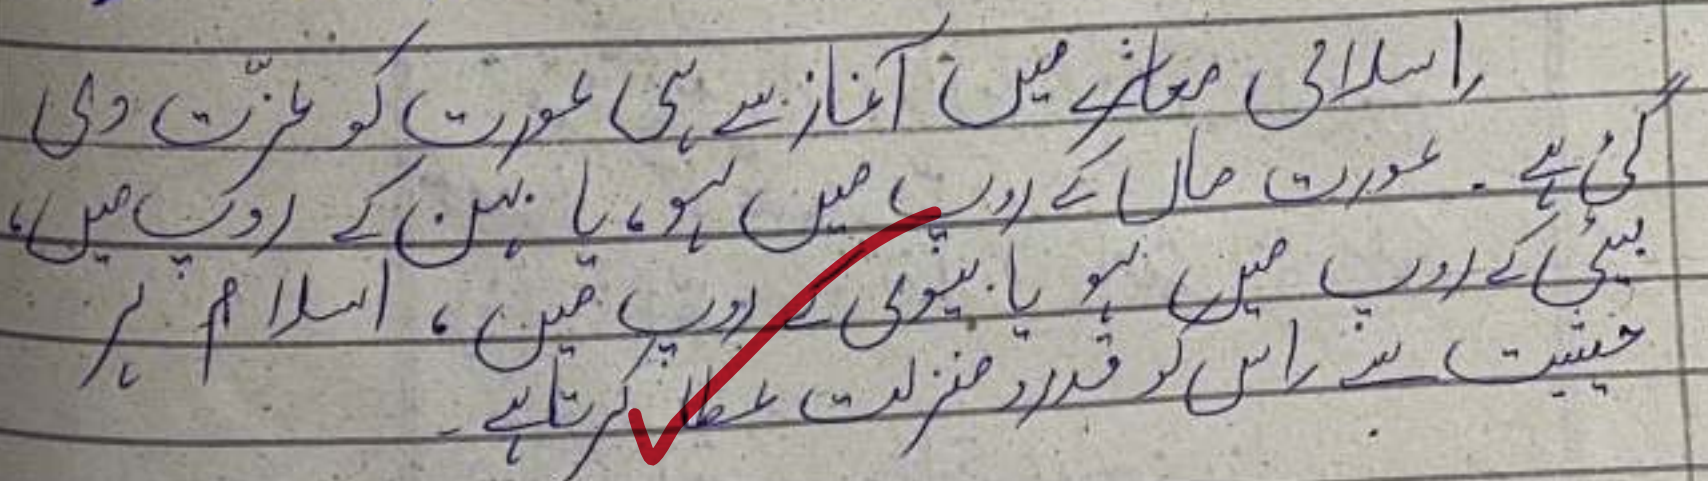 اسلامی معاشرے میں آغاز سے ہی عورت کو عزّت دی
گئی ہے۔ عورت ماں کے روپ میں ہو، یا بہن کے روپ میں،
بیٹی کے روپ میں ہو یا بیوی کے روپ میں، اسلام ہر
حیثیت سے اس کو قدر و منزلت عطا کرتا ہے۔